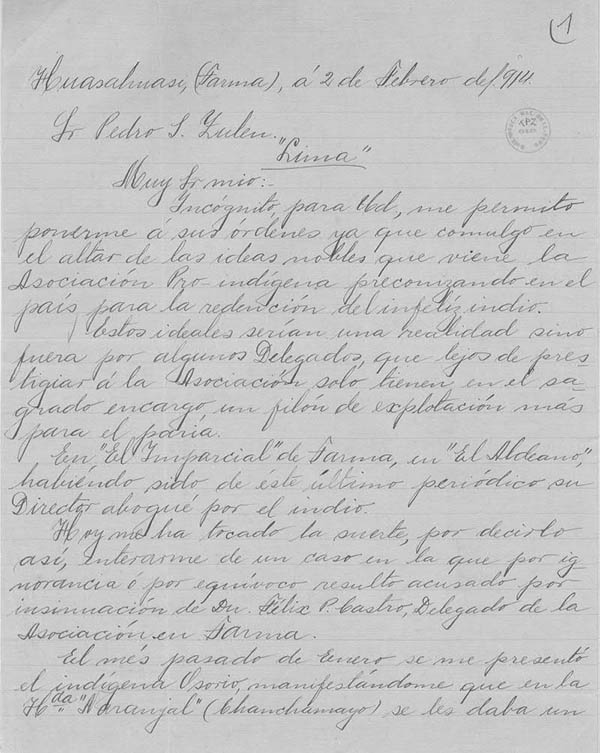 (1
Huasahuasi, (Tarma), á 2 de Febrero de 1914.
Sr Pedro S. Zulen.
"Lima"
Muy Sr mio:-
Incógnito, para Ud, me permito
ponerme á sus ordenes ya que comulgo en
el altar de las ideas nobles que viene la
Asociación Pro-indígena preconizando en el
país para la redención del infeliz indio.
Estos ideales serían una realidad sino
fuera por algunos Delegados, que lejos de pres-
tigiar á la Asociación solo tienen, en el sa-
grado encargo, un filón de explotación más
para el paria.
En "El Imparcial" de Tarma, en "El Aldeano",
habiendo sido de éste último periódico su
Director abogué por el indio.
Hoy me ha tocado la suerte, por decirlo
así, enterarme de un caso en la que por ig-
norancia ó por equívoco resulto acusado por
insinuación de Dn. Félix P. Castro, Delegado de la
Asociación en Tarma.
El més pasado de Enero se me presentó
el indígena Osorio, manifestándome que en la
Hda "Naranjal" (Chanchamayo) se les daba un